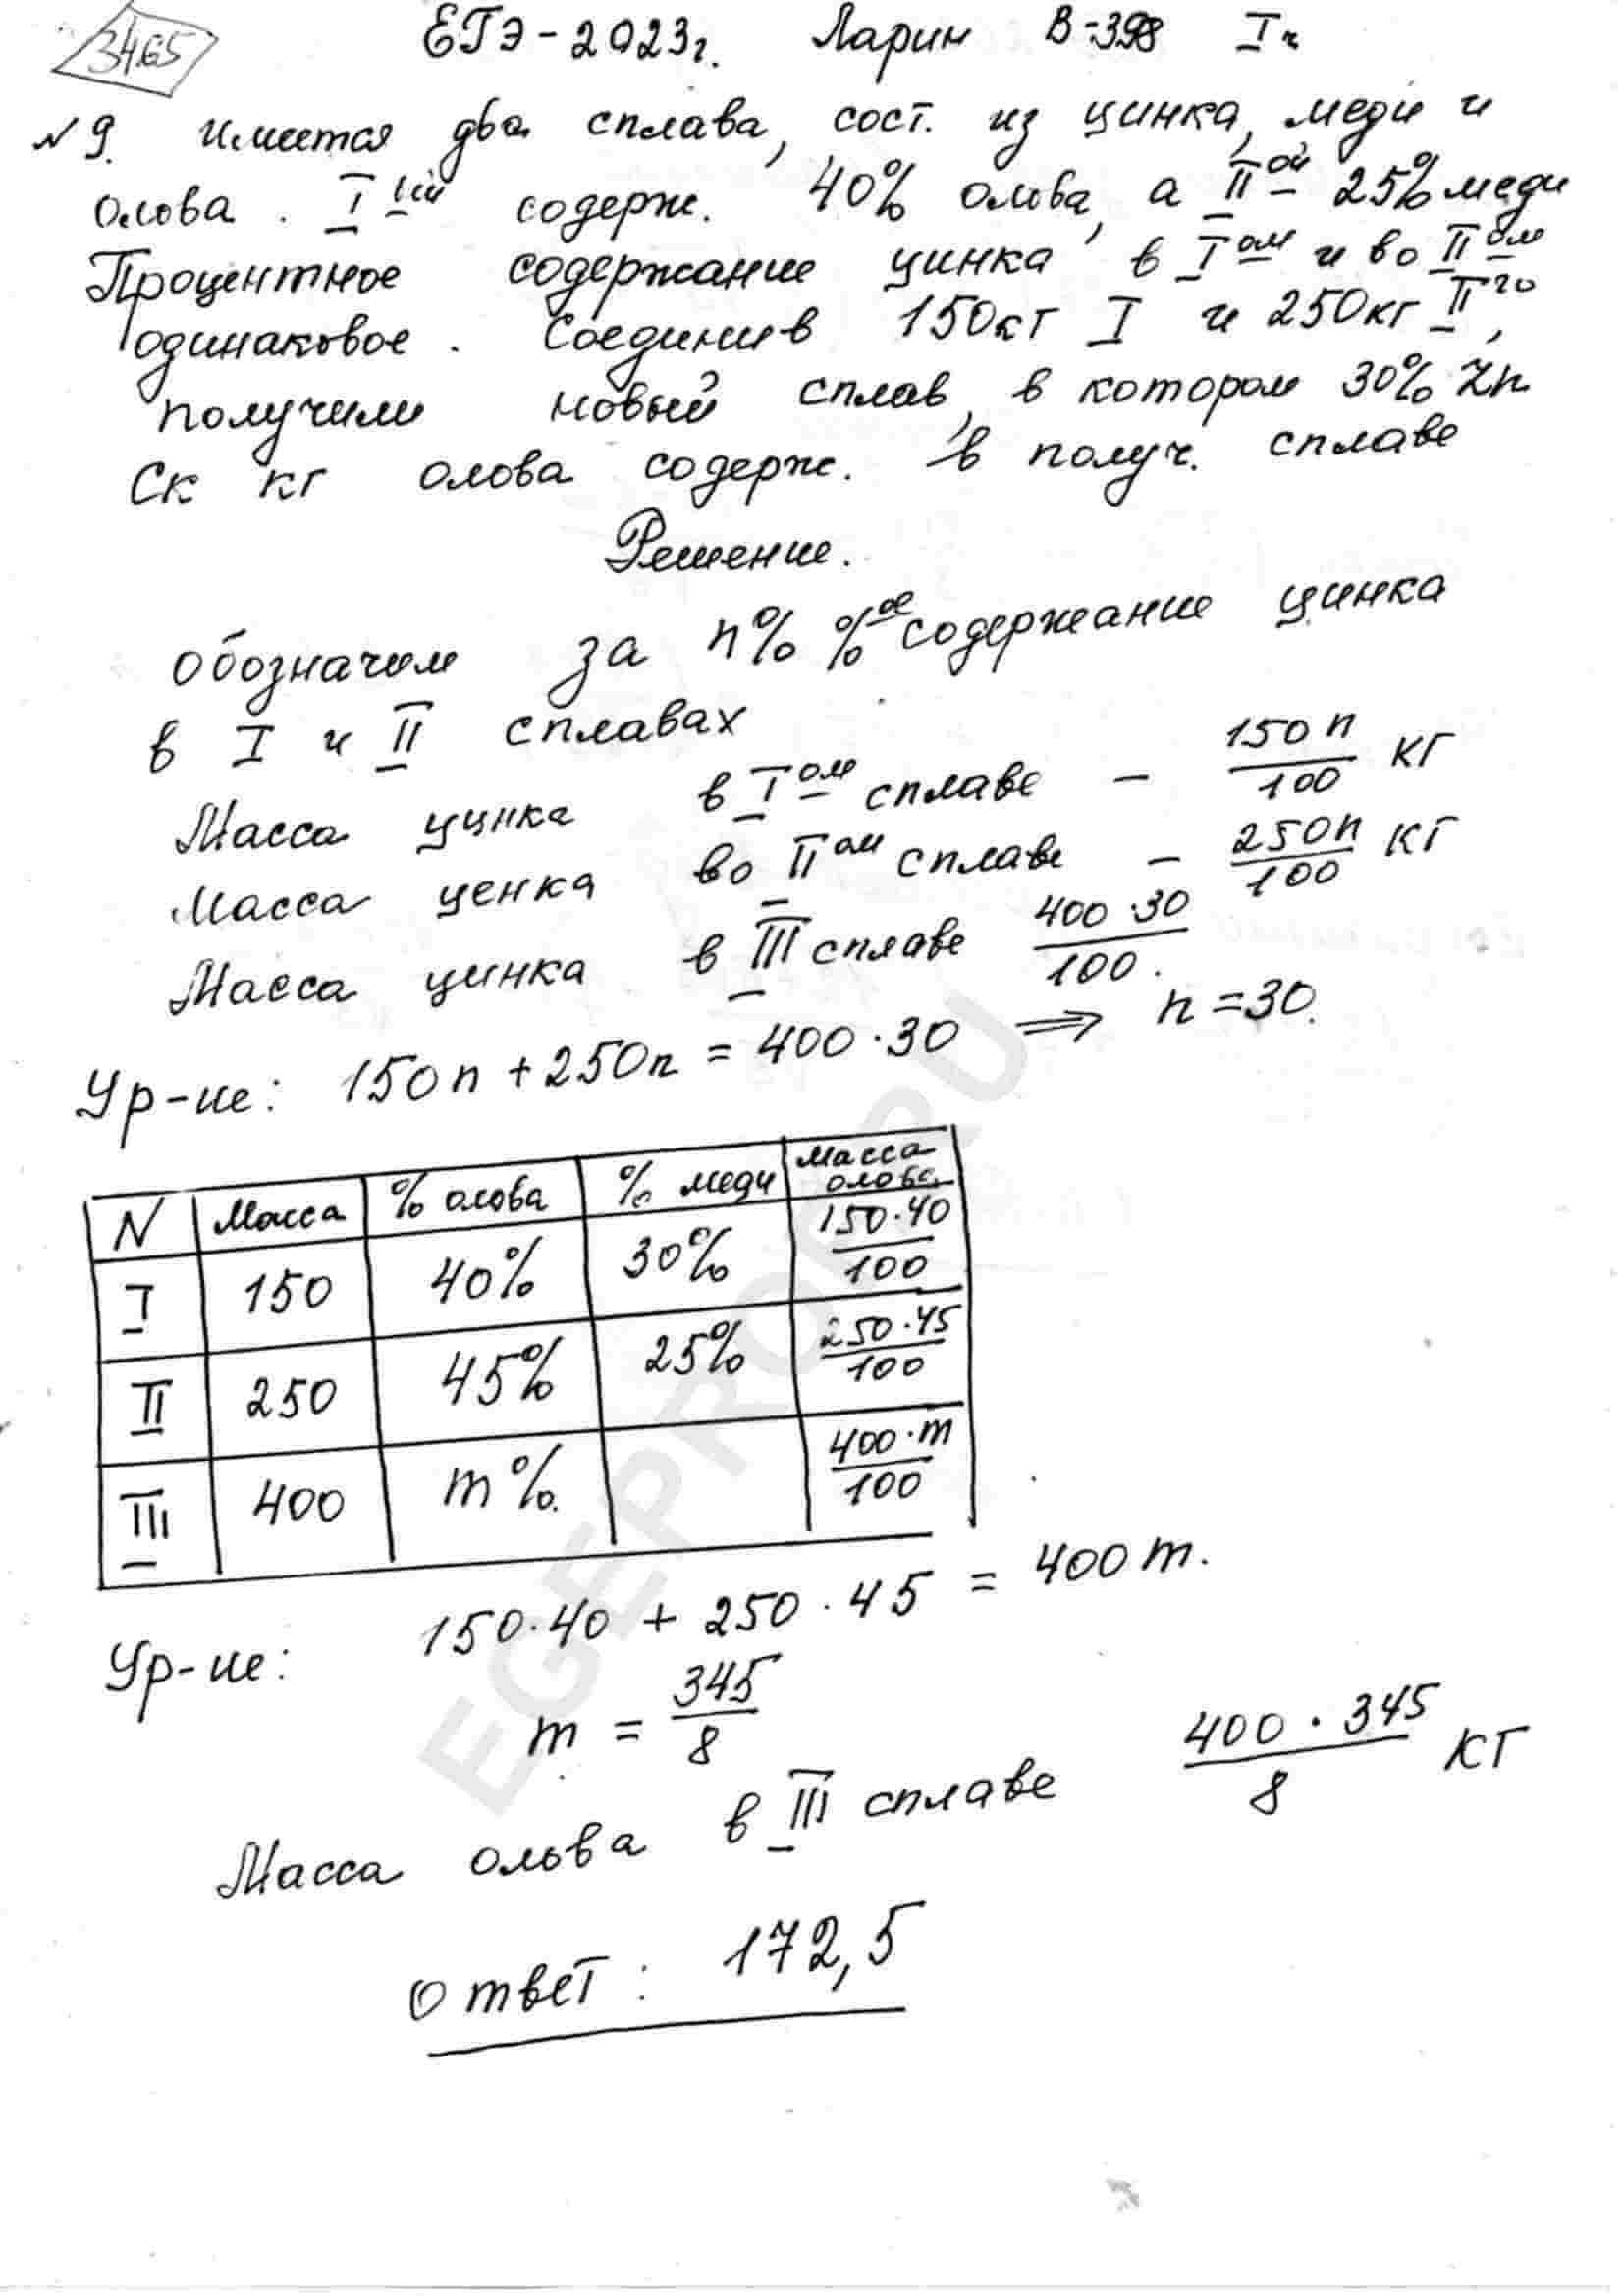 3465
ЕГЭ-2023г. Ларин В-398 Iч
№9. Имеется два сплава, сост. из цинка, меди и
олова. I ый содерж. 40% олова, а II ой 25% меди
Процентное содержание цинка в I ом и во II ом
одинаковое. Соединив 150кг I и 250кг II го,
получили новый сплав, в котором 30% Zn.
Ск кг олова содерж. в получ. сплаве
Решение.
Обозначим за n% %ое содержание цинка
в I и II сплавах
Масса цинка в I ом сплаве - 150n/100 кг
Масса ценка во II ом сплаве - 250n/100 кг
Масса цинка в III сплаве 400·30/100.
Ур-ие: 150n + 250n = 400·30 ⟹ n=30.
N Масса % олова % меди Масса олова
I 150 40% 30% 150·40/100
II 250 45% 25% 250·45/100
III 400 m%. 400·m/100
Ур-ие: 150·40 + 250·45 = 400m.
m = 345/8
Масса ольва в III сплаве 400·345/8 кг
Ответ: 172,5
EGEPROF.RU